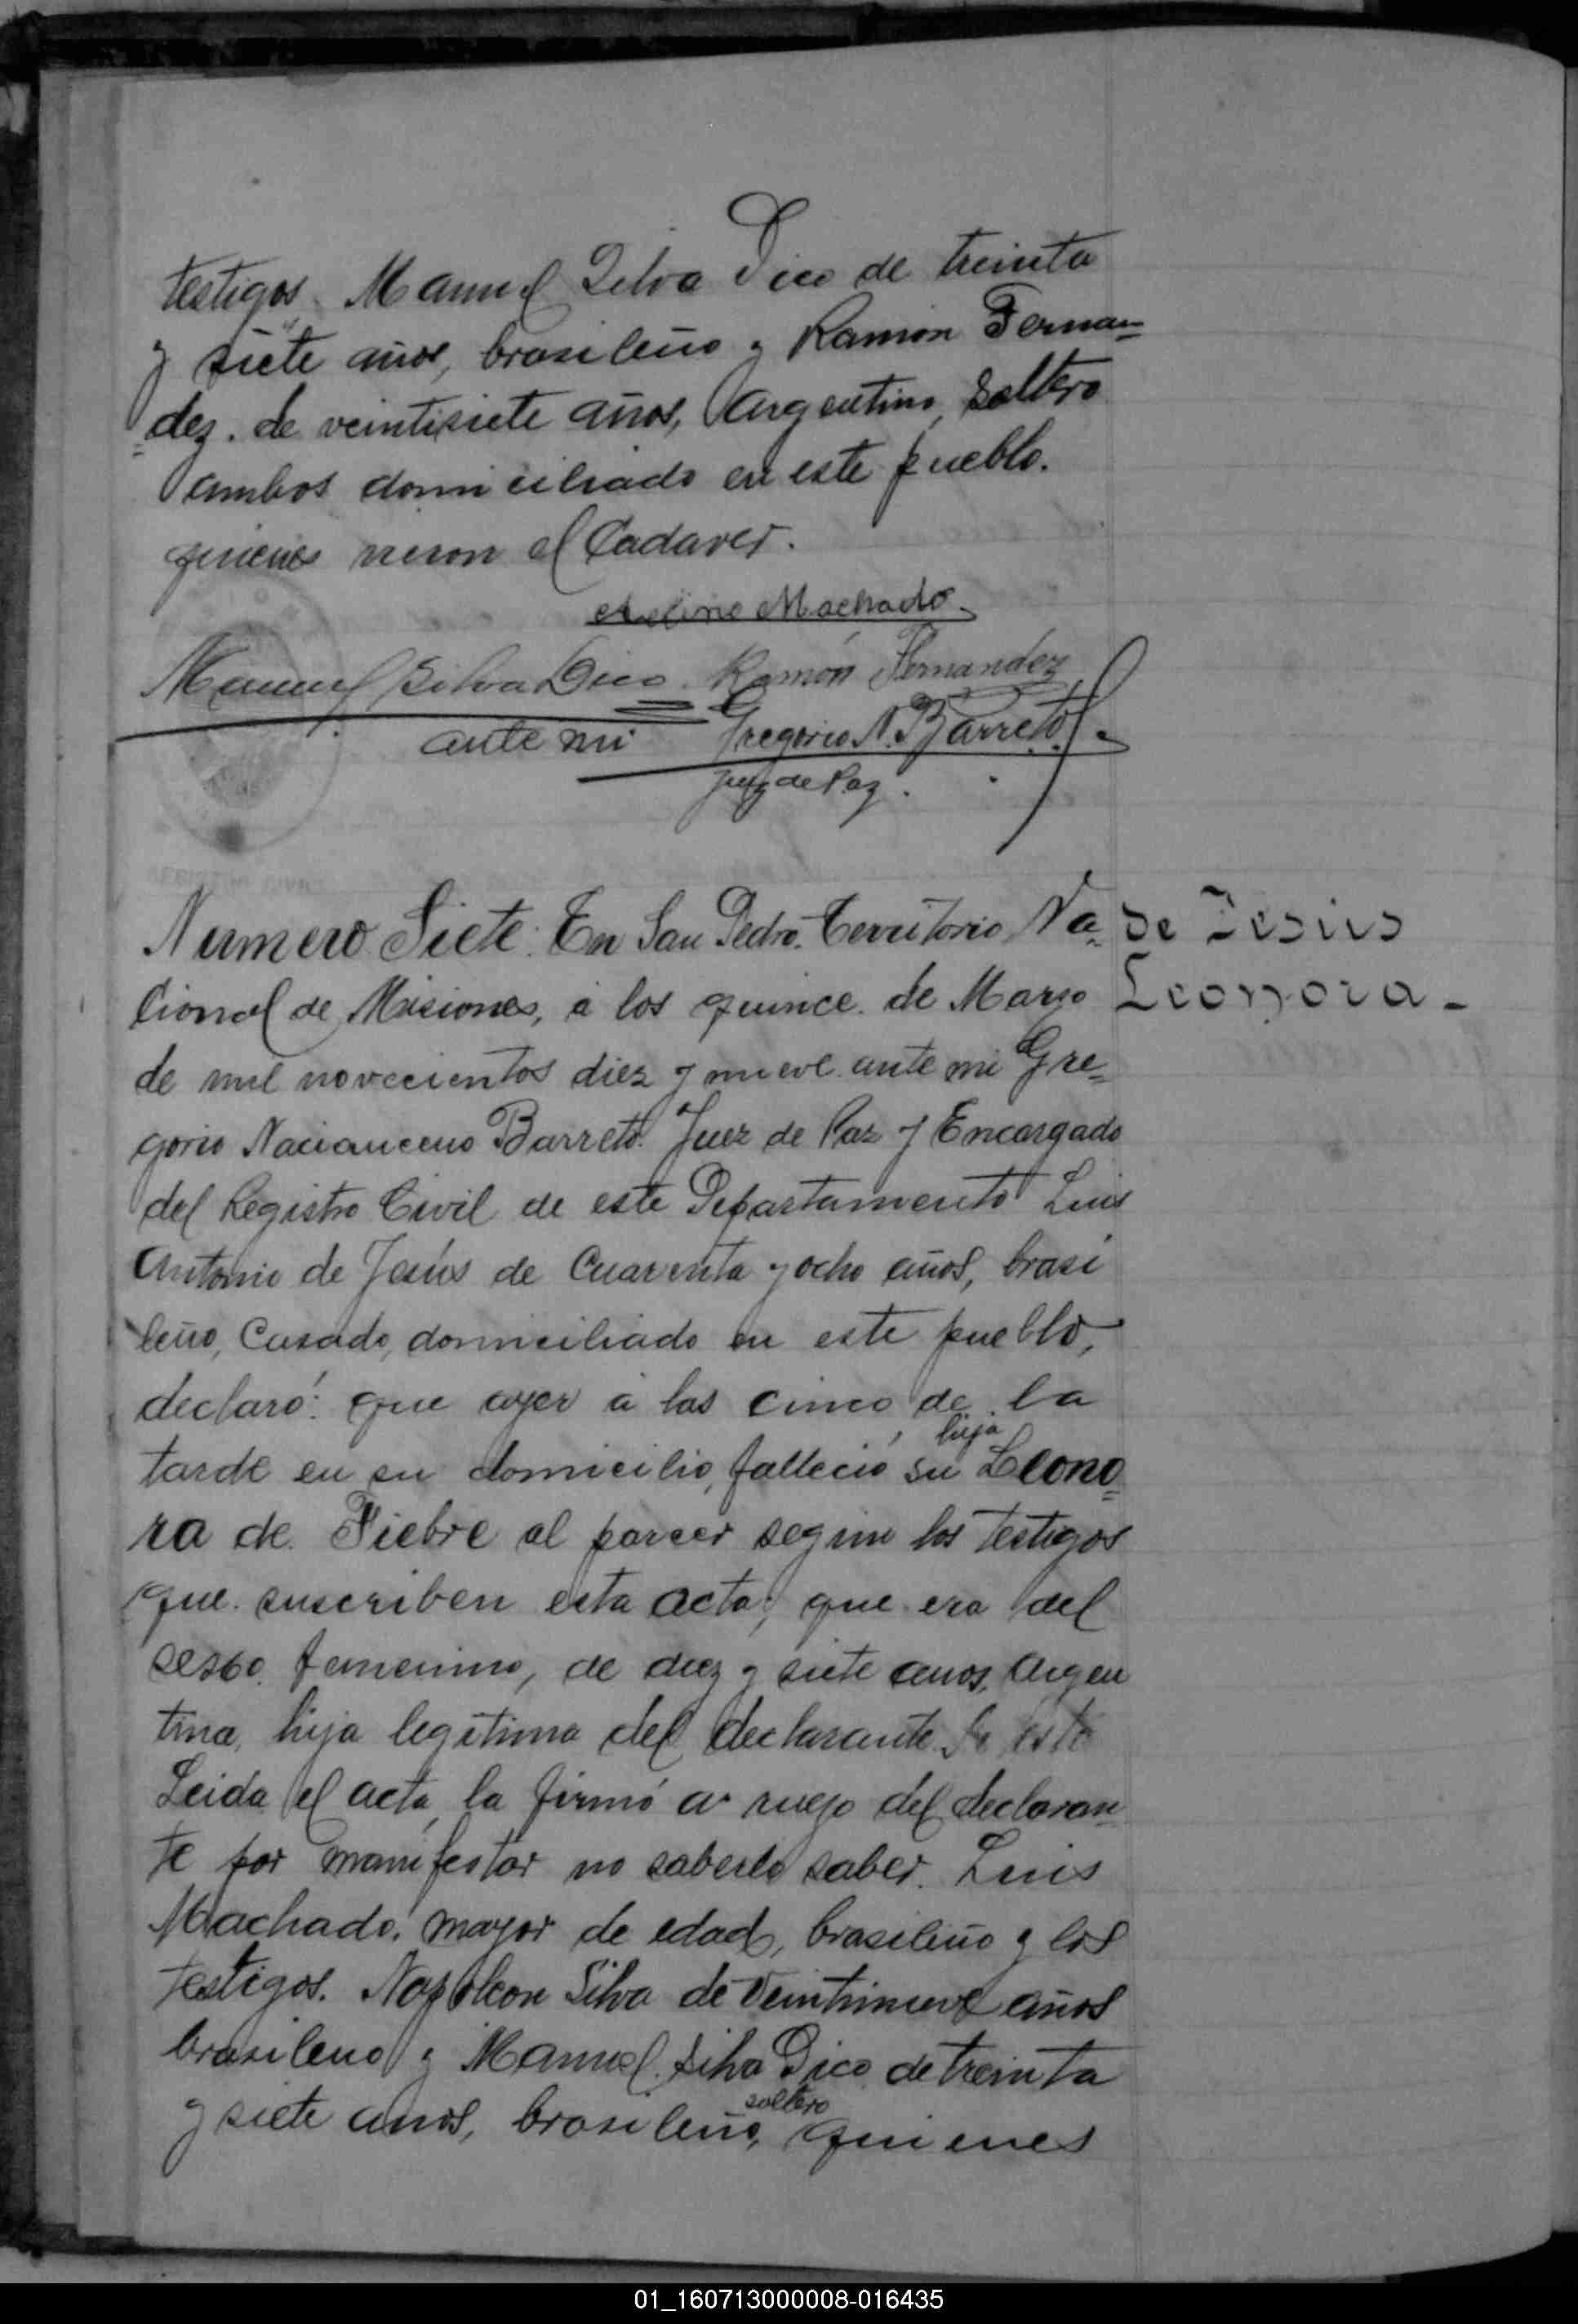 testigos, Manuel Silva Dico de treinta
y siete años, brasileño y Ramón Fernan=
=dez. de veintisiete años, Argentino, soltero
ambos domiciliado en este pueblo.
quienes vieron el Cadaver.
Avelino Machado
Manuel Silva Dico Ramón Fernandez
ante mi Gregorio N. Barreto
Juez de Paz.
Numero Siete: En San Pedro. Territorio Na=
cional de Misiones, á los quince de Marzo
de mil novecientos diez y nueve ante mi Gre=
gorio Nacianceno Barreto. Juez de Paz y Encargado
del Registro Civil de este Departamento Luis
Antonio de Jesús de Cuarenta y ocho años, brasi
leño, Casado, domiciliado en este pueblo,
declaró: que ayer á las cinco de la
tarde en su domicilio, falleció su hija Leono=
ra de Fiebre al parcer segun los testigos
que suscriben esta acta, que era del
sexo femenino, de diez y siete años, Argen
tina, hija legítima del declarante.
Leida el acta, la firmó a ruejo del declaran=
te por manifestar no saberlo saber. Luis
Machado, mayor de edad, brasileño y los
testigos. Napoleon Silva de Veintinueve años
brasileno y Manuel Silva Dico de treinta
y siete años, brasileño, soltero quienes
De Jesús
Leonora -
01_160713000008-016435